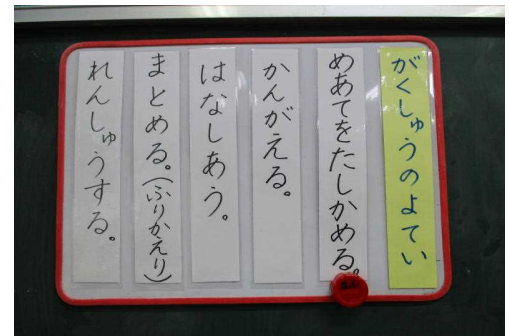 がくしゅうのよてい
めあてをたしかめる。
かんがえる。
はなしあう。
まとめる。(ふりかえり)
れんしゅうする。